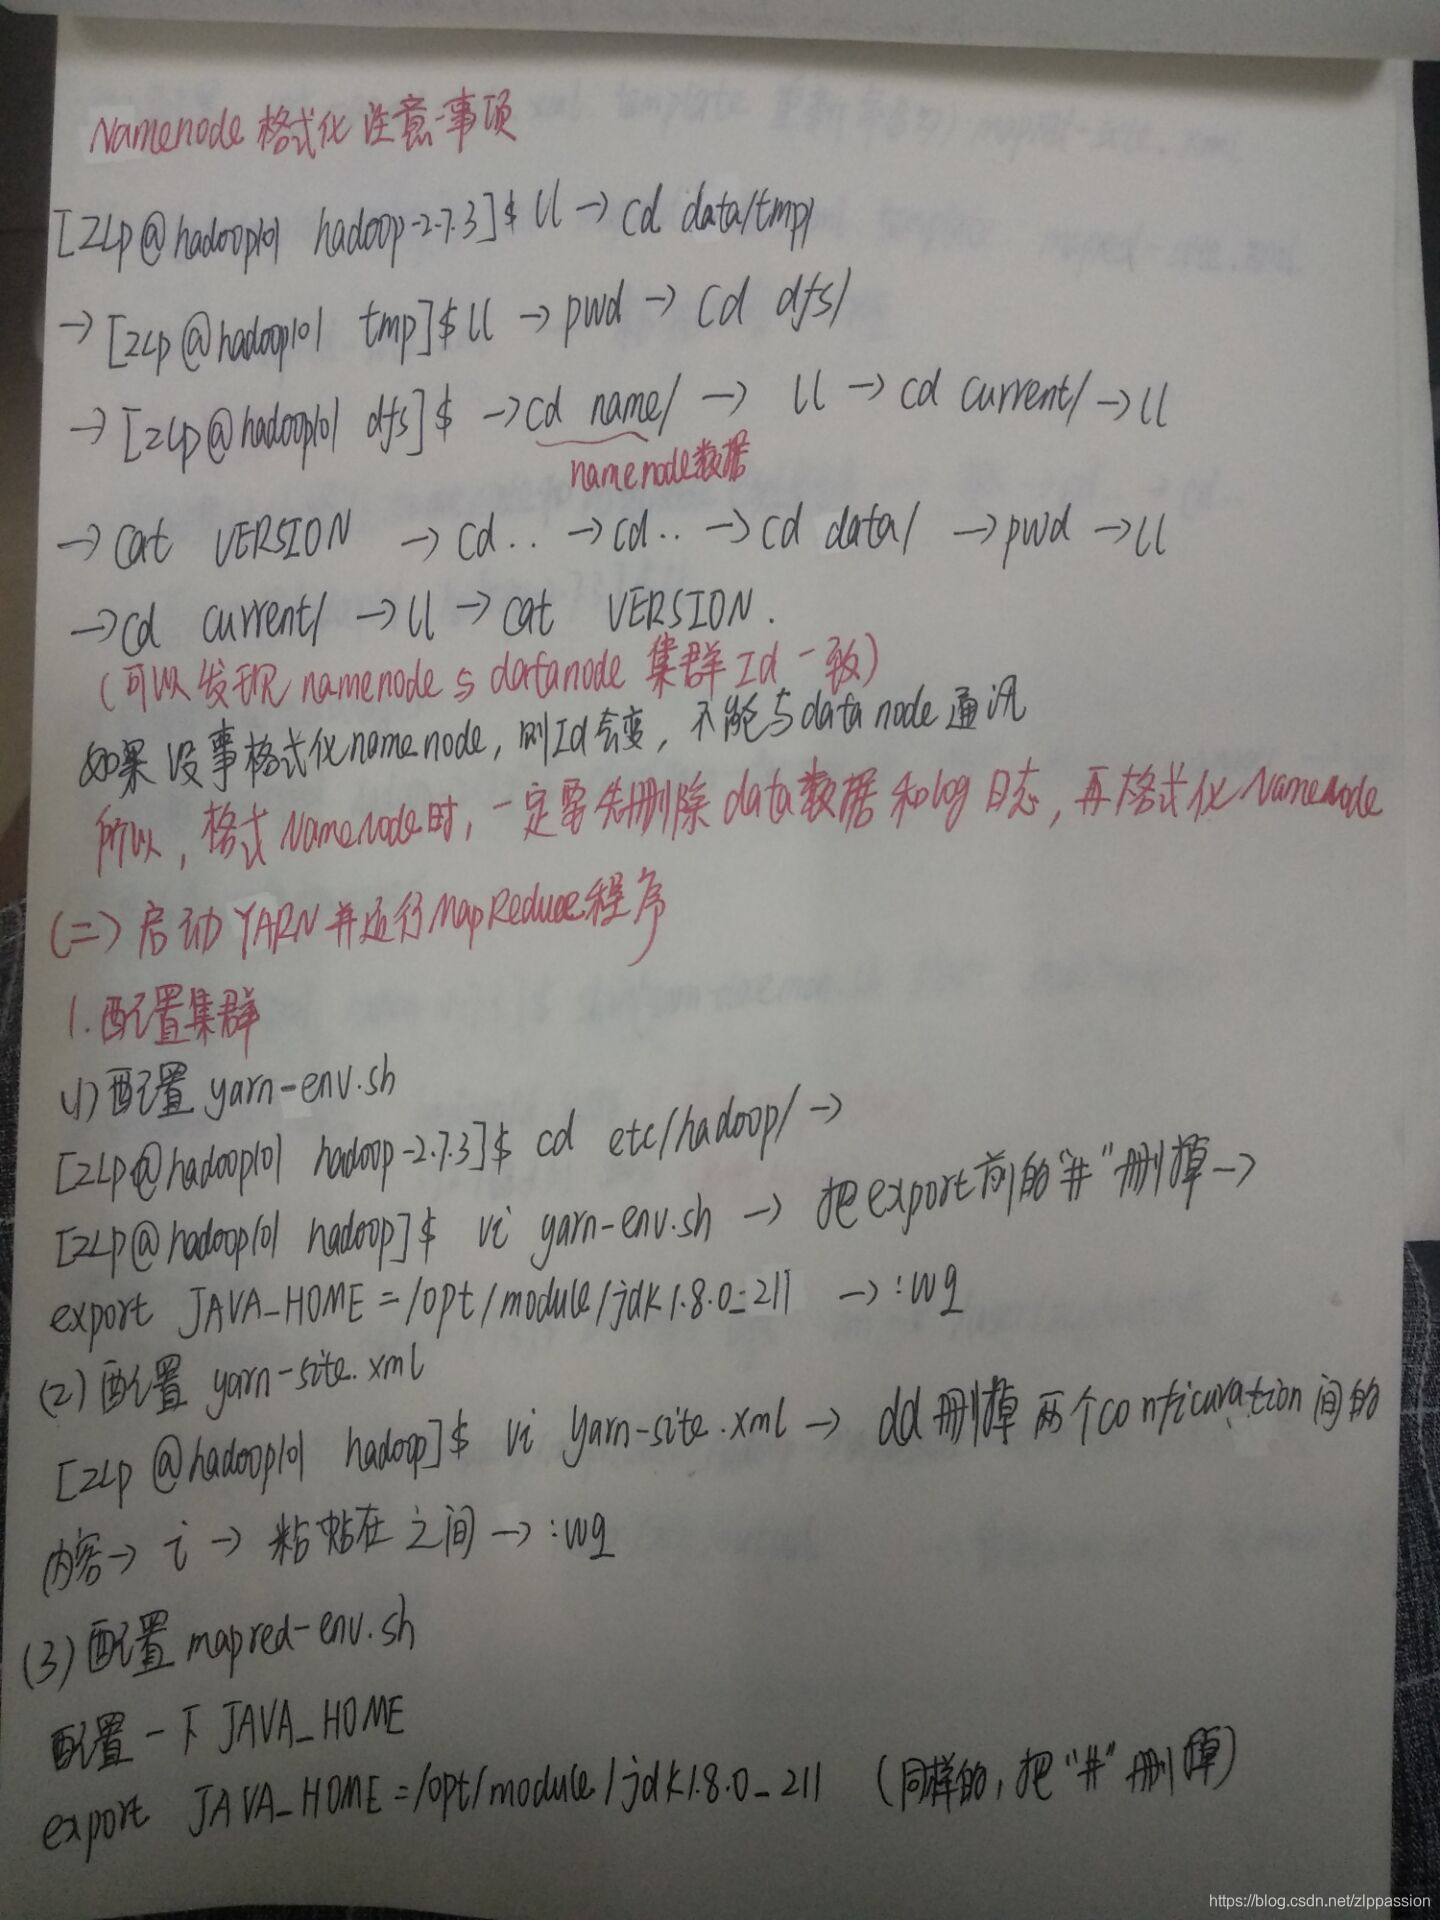 Namenode 格式化注意事项
[zlp@hadoop101 hadoop-2.7.3]$ ll → cd data/tmp/
→ [zlp@hadoop101 tmp]$ ll → pwd → cd dfs/
→ [zlp@hadoop101 dfs]$ → cd name/ → ll → cd current/ → ll
namenode数据
→ cat VERSION → cd.. → cd.. → cd data/ → pwd → ll
→ cd current/ → ll → cat VERSION.
(可以发现 namenode 与 datanode 集群 Id 一致)
如果没事格式化namenode, 则Id会变, 不能与datanode通讯
所以, 格式NameNode时, 一定要先删除data数据和log日志, 再格式化NameNode
(二) 启动YARN并运行MapReduce程序
1. 配置集群
(1) 配置 yarn-env.sh
[zlp@hadoop101 hadoop-2.7.3]$ cd etc/hadoop/ →
[zlp@hadoop101 hadoop]$ vi yarn-env.sh → 把export前的"#"删掉 →
export JAVA_HOME=/opt/module/jdk1.8.0_211 → :wq
(2) 配置 yarn-site.xml
[zlp@hadoop101 hadoop]$ vi yarn-site.xml → dd删掉两个configuration间的
内容 → i → 粘帖在之间 → :wq
(3) 配置 mapred-env.sh
配置一下 JAVA_HOME
export JAVA_HOME=/opt/module/jdk1.8.0_211 (同样的, 把"#"删掉)
https://blog.csdn.net/zlppassion